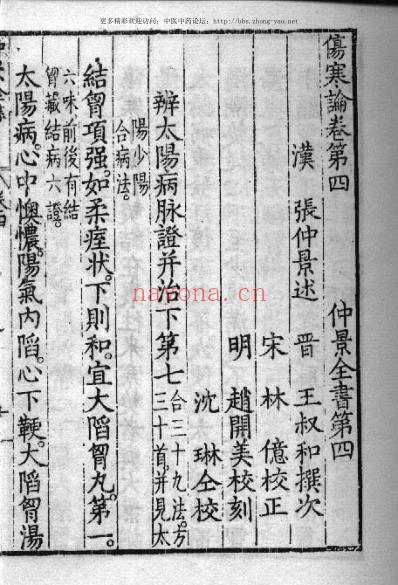 更多精彩欢迎访问：中医中药论坛：http://bbs.zhong-yao.net/
傷寒論卷第四　仲景全書第四
漢　張仲景述　晉　王叔和撰次
宋　林　億校正
明　趙開美校刻
沈　琳仝校
辨太陽病脉證并治下第七
合三十九法。方
三十首。并見太
陽少陽
合病法。
結胷項强。如柔痓状。下則和。宜大陷胷丸。第一。
六味前後有結
胷藏結病六證。
太陽病。心中懊憹。陽氣內䧟。心下鞕。大陷胷湯
nayona.cn